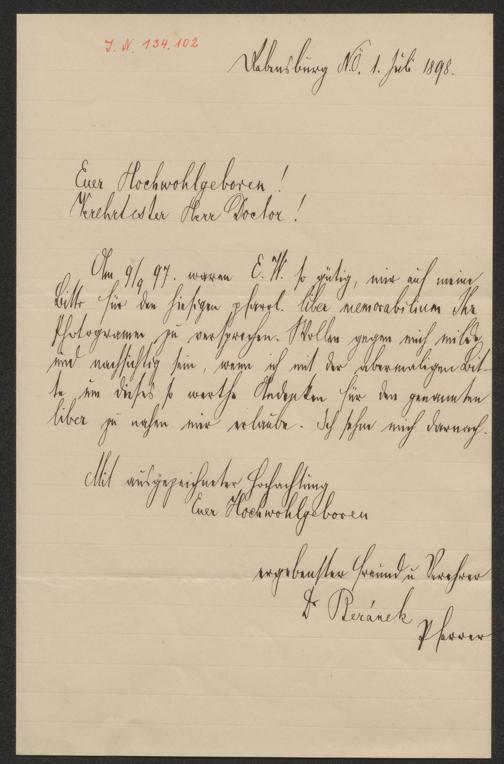 J. N. 134.102
Rabensburg N.Ö. 1. Juli 1898.
Euer Hochwohlgeboren!
Verehrtester Herr Doctor!
Am 9/9 97. waren E. W. so gütig, mir auf meine
Bitte für den hiesigen pfarrl. liber memorabilium Ihr
Photogramm zu versprechen. Wollen gegen mich milde
und nachsichtig sein, wenn ich mit der abermaligen Bit-
te um dieses so werthe Andenken für den genannten
liber zu nahen mir erlaube. Ich sehne mich darnach.
Mit ausgezeichneter Hochachtung
Euer Hochwohlgeboren
ergebenster Freund u Verehrer
Dr Beránek
Pfarrer